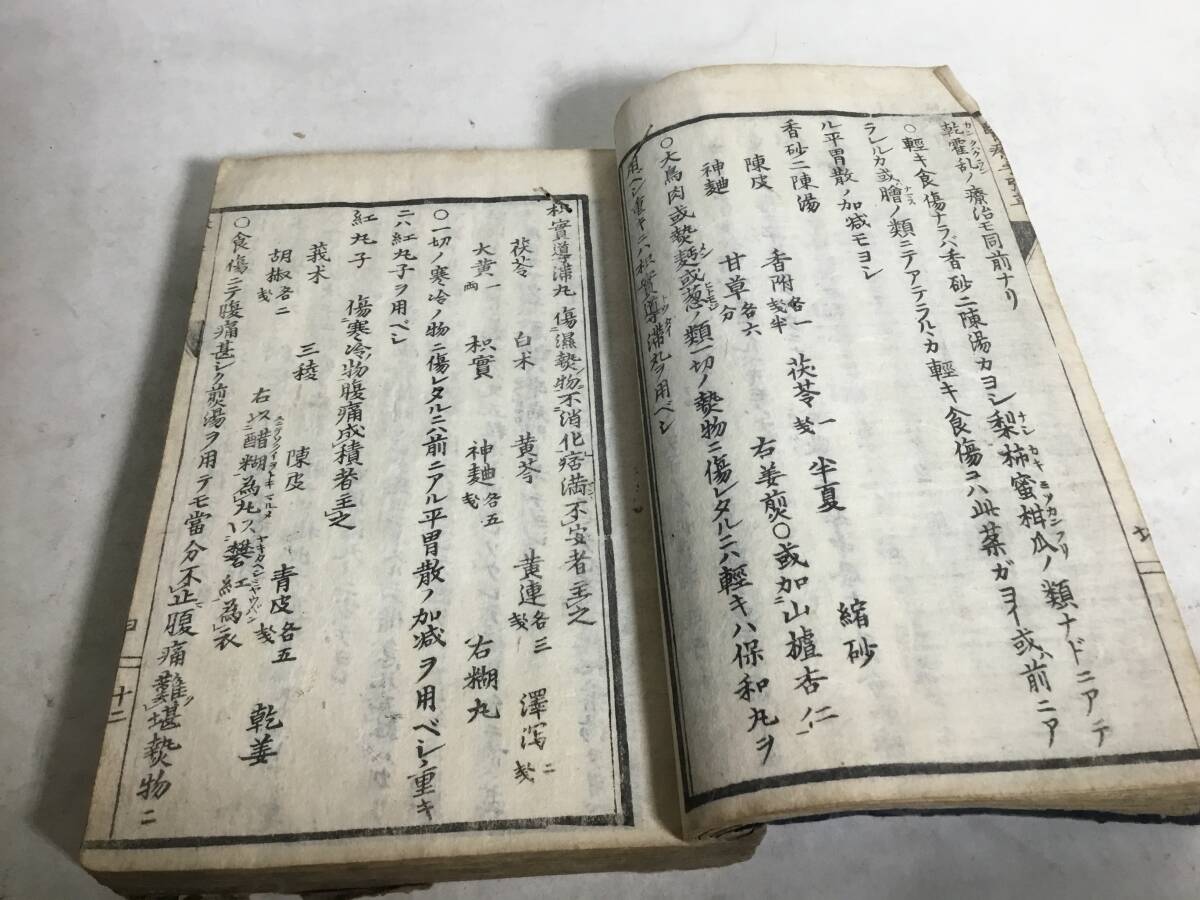 乾霍乱ノ療治モ同前ナリ
○輕キ食傷ナラバ香砂二陳湯カヨシ梨柿蜜柑瓜ノ類ナドニアテ
ラレルカ或膾ノ類ニテアテラルヽカ輕キ食傷ヲハ此薬ガヨイ或ハ前ニア
ル平胃散ノ加减モヨシ
香砂二陳湯
陳皮 香附各一戔半 茯苓一戔 半夏 縮砂
神麯 甘草各六分 右姜煎○或加山樝杏仁
○大鳥肉或𤍠麺或葱ノ類一切ノ𤍠物ニ傷レタルニハ輕キハ保和丸ヲ
用ベシ重キニハ枳實導滞丸ヲ用ベシ
枳實導滞丸 傷濕𤍠物不消化痞満不安者主之
茯苓 白术 黄芩 黄連各三戔 澤瀉二戔
大黄一両 枳實 神麯各五戔 右糊丸
○一切ノ寒冷ノ物ニ傷レタルニハ前ニアル平胃散ノ加减ヲ用ベシ重キ
ニハ紅丸子ヲ用ベシ
紅丸子 傷寒冷物腹痛成積者主之
莪朮 三稜 陳皮 青皮各五戔 乾姜
胡椒各二戔 右ス醋糊為丸ス礬紅為衣
○食傷ニテ腹痛甚シク煎湯ヲ用テモ當分不止腹痛難堪𤍠物ニ
十二